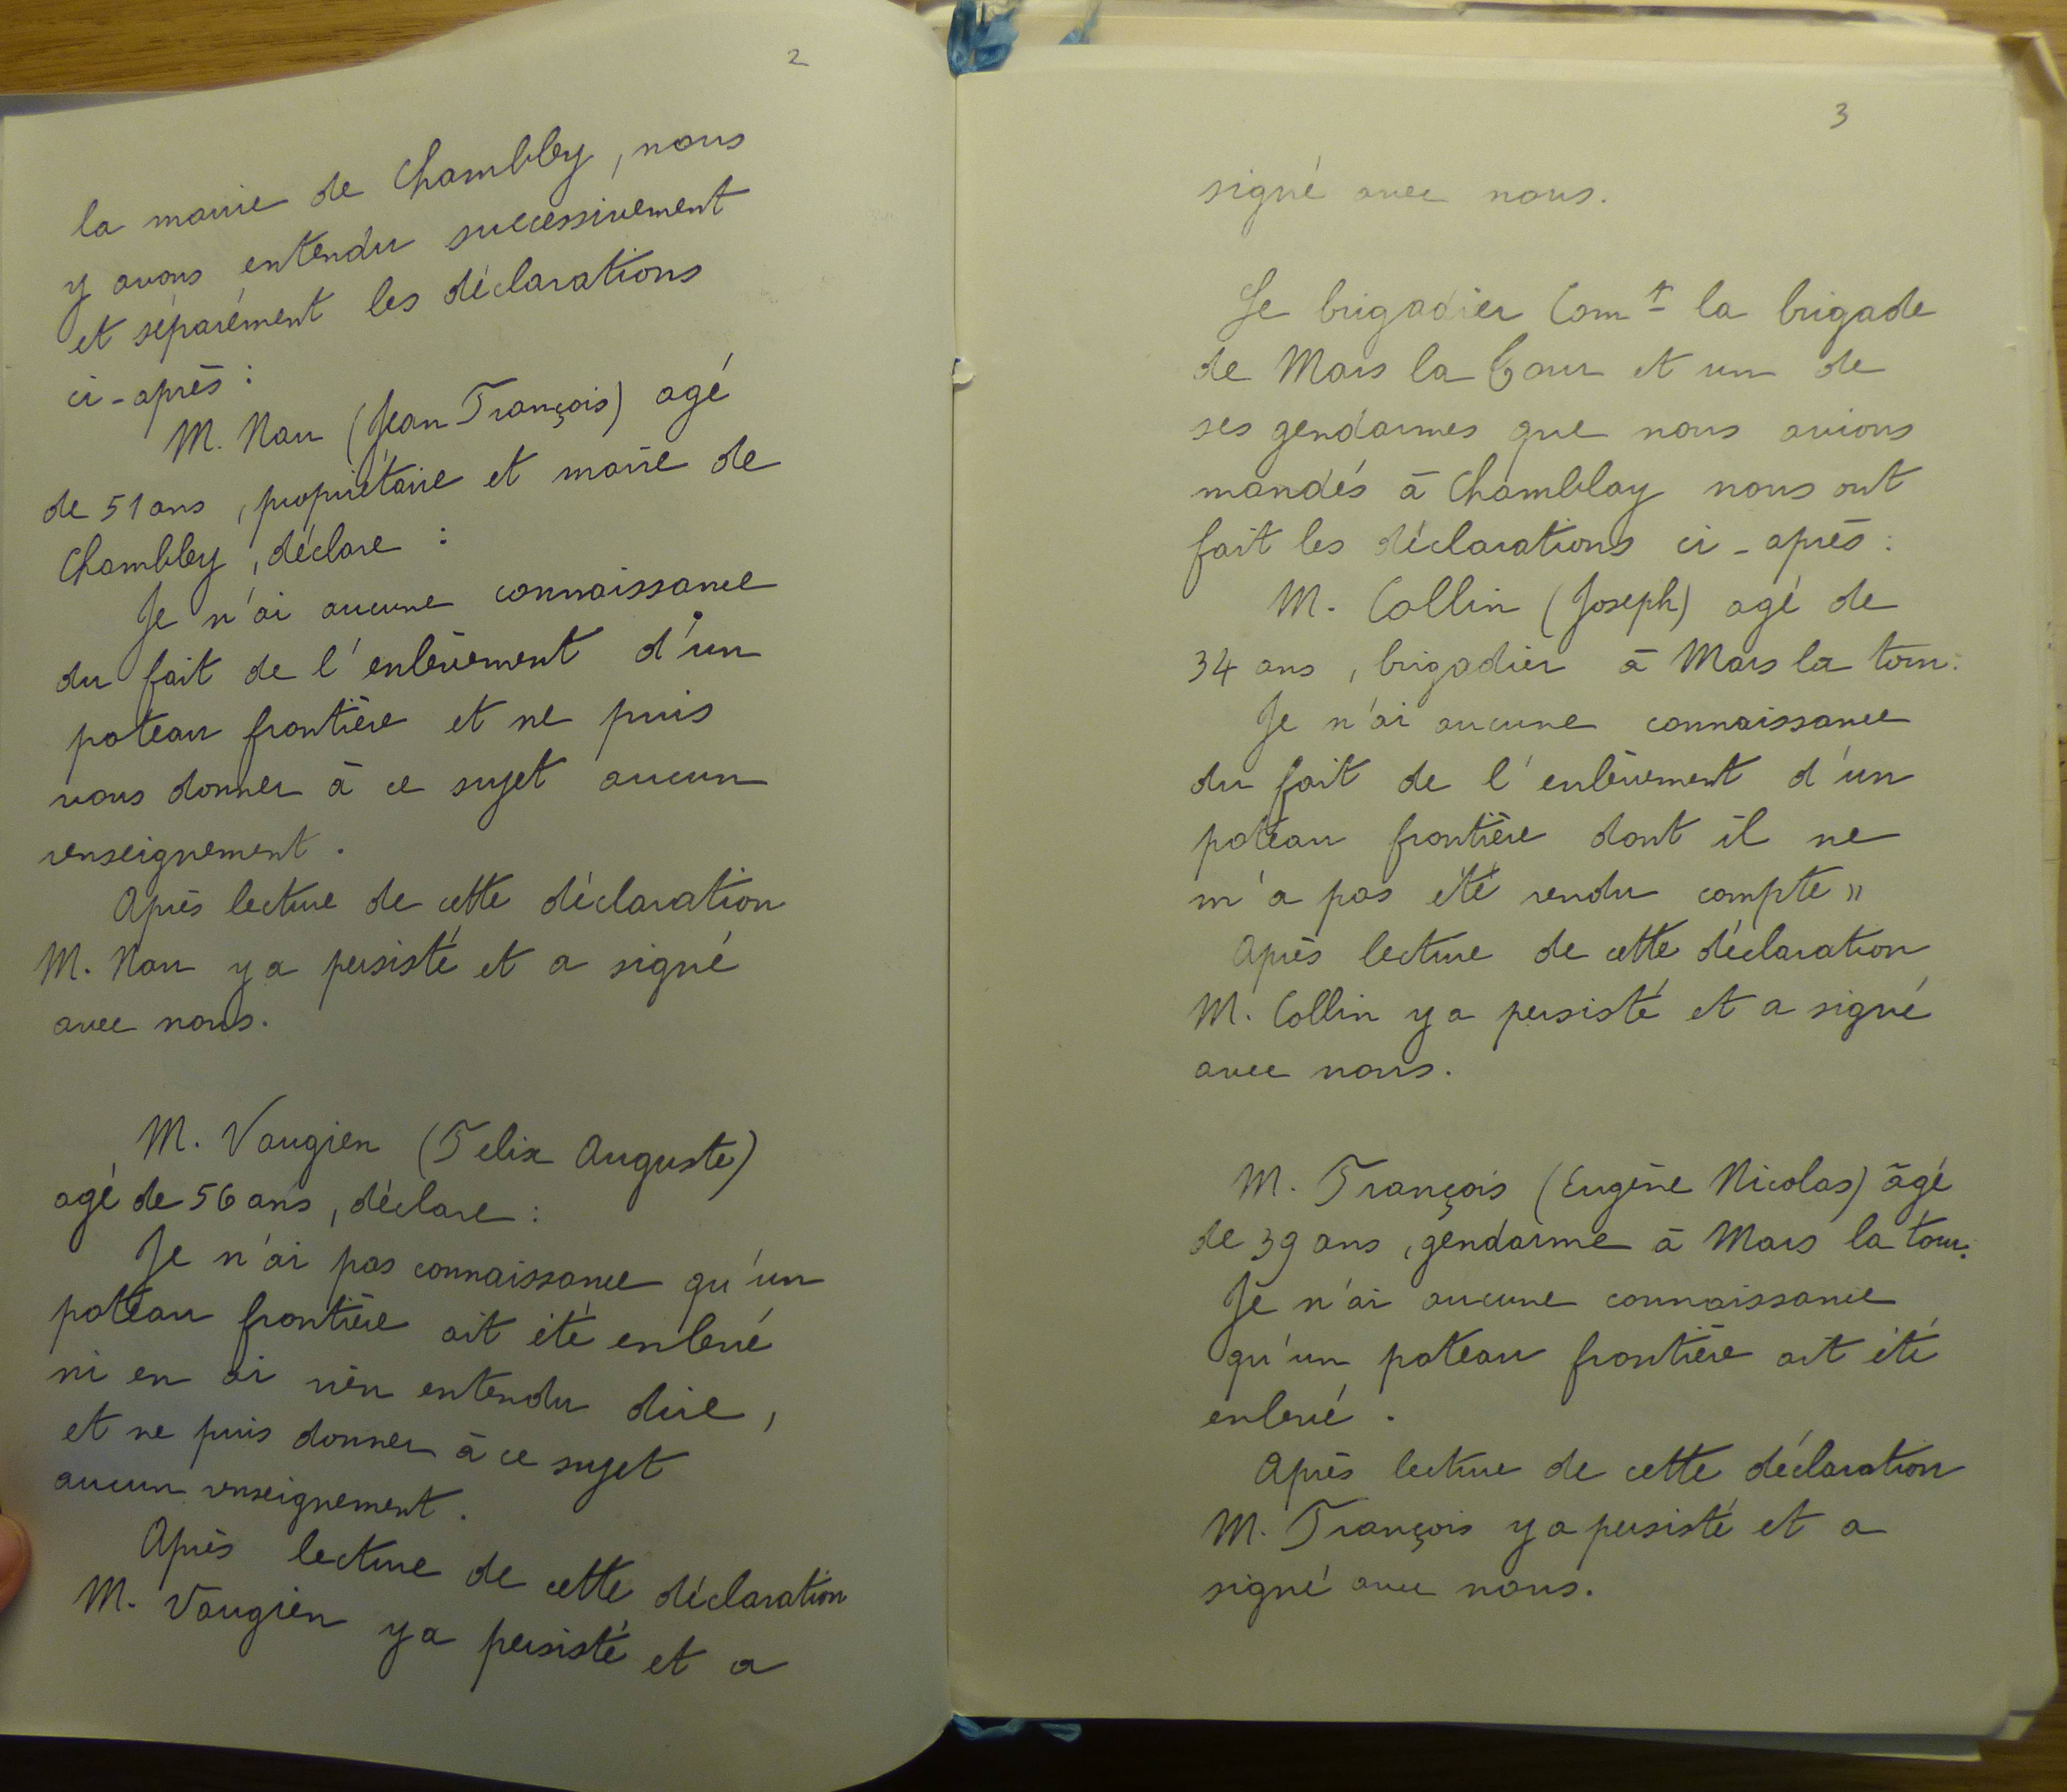 2
la mairie de Chambley, nous
y avons entendu successivement
et séparément les déclarations
ci-après :
M. Nau (Jean François) agé
de 51 ans, propriétaire et maire de
Chambley, déclare :
Je n'ai aucune connaissance
du fait de l'enlèvement d'un
poteau frontière et ne puis
vous donner à ce sujet aucun
renseignement.
Après lecture de cette déclaration
M. Nau y a persisté et a signé
avec nous.
M. Vaugien (Felix Auguste)
agé de 56 ans, déclare :
Je n'ai pas connaissance qu'un
poteau frontière ait été enlevé
ni en ai rien entendu dire,
et ne puis donner à ce sujet
aucun renseignement.
Après lecture de cette déclaration
M. Vaugien y a persisté et a
3
signé avec nous.
Le brigadier Com^t la brigade
de Mars la Tour et un de
ses gendarmes que nous avions
mandés à Chamblay nous ont
fait les déclarations ci-après :
M. Collin (Joseph) agé de
34 ans, brigadier à Mars la tour.
Je n'ai aucune connaissance
du fait de l'enlèvement d'un
poteau frontière dont il ne
m'a pas été rendu compte »
Après lecture de cette déclaration
M. Collin y a persisté et a signé
avec nous.
M. François (Eugène Nicolas) âgé
de 39 ans, gendarme à Mars la tour.
Je n'ai aucune connaissance
qu'un poteau frontière ait été
enlevé.
Après lecture de cette déclaration
M. François y a persisté et a
signé avec nous.